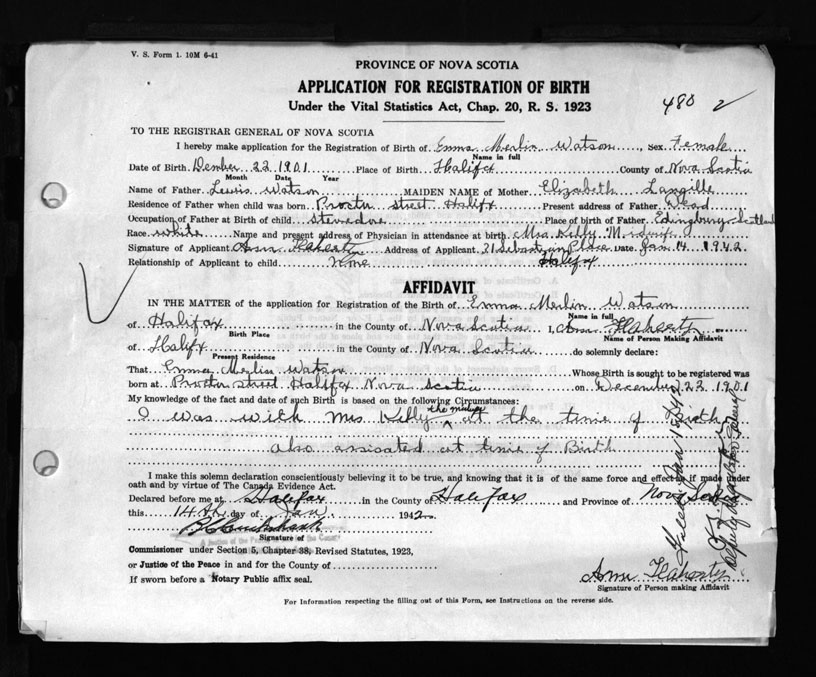 V. S. Form 1. 10M 6-41
PROVINCE OF NOVA SCOTIA
APPLICATION FOR REGISTRATION OF BIRTH
Under the Vital Statistics Act, Chap. 20, R. S. 1923
480 2
TO THE REGISTRAR GENERAL OF NOVA SCOTIA
I hereby make application for the Registration of Birth of Emma Merlin Watson, Sex Female
Name in full
Date of Birth Dember 22 1901 Place of Birth Halifx County of Nova Scotia
Month Date Year
Name of Father Lewis Watson MAIDEN NAME of Mother Elizabeth Langille
Residence of Father when child was born Proctor street Halifx Present address of Father Dead
Occupation of Father at Birth of child Stevedore Place of birth of Father Edingbury Scotland
Race white Name and present address of Physician in attendance at birth Mrs Kelly Midwife
Signature of Applicant Ann Flaherty Address of Applicant 31 Sebastian Place Date Jan 14 1942
Relationship of Applicant to child None Halifx
AFFIDAVIT
IN THE MATTER of the application for Registration of the Birth of Emma Merlin Watson
Name in full
of Halifax in the County of Nova Scotia I, Ann Flaherty
Birth Place Name of Person Making Affidavit
of Halifx in the County of Nova Scotia do solemnly declare:
Present Residence
That Emma Merlin Watson Whose Birth is sought to be registered was
born at Proctor street Halifax Nova Scotia on December 22 1901
My knowledge of the fact and date of such Birth is based on the following Circumstances:
I was with Mrs Kelly the midwife at the time of Birth
also assisated at time of Birth
I make this solemn declaration conscientiously believing it to be true, and knowing that it is of the same force and effect if made under
oath and by virtue of The Canada Evidence Act.
Declared before me at Halifax in the County of Halifax and Province of Nova Scotia
this 14th day of Jan. 1942
Signature of
Commissioner under Section 5, Chapter 38, Revised Statutes, 1923,
or Justice of the Peace in and for the County of
If sworn before a Notary Public affix seal.
Filed Jan 15 1942
Deputy Registrar General
Ann Flaherty
Signature of Person making Affidavit
For Information respecting the filling out of this Form, see Instructions on the reverse side.